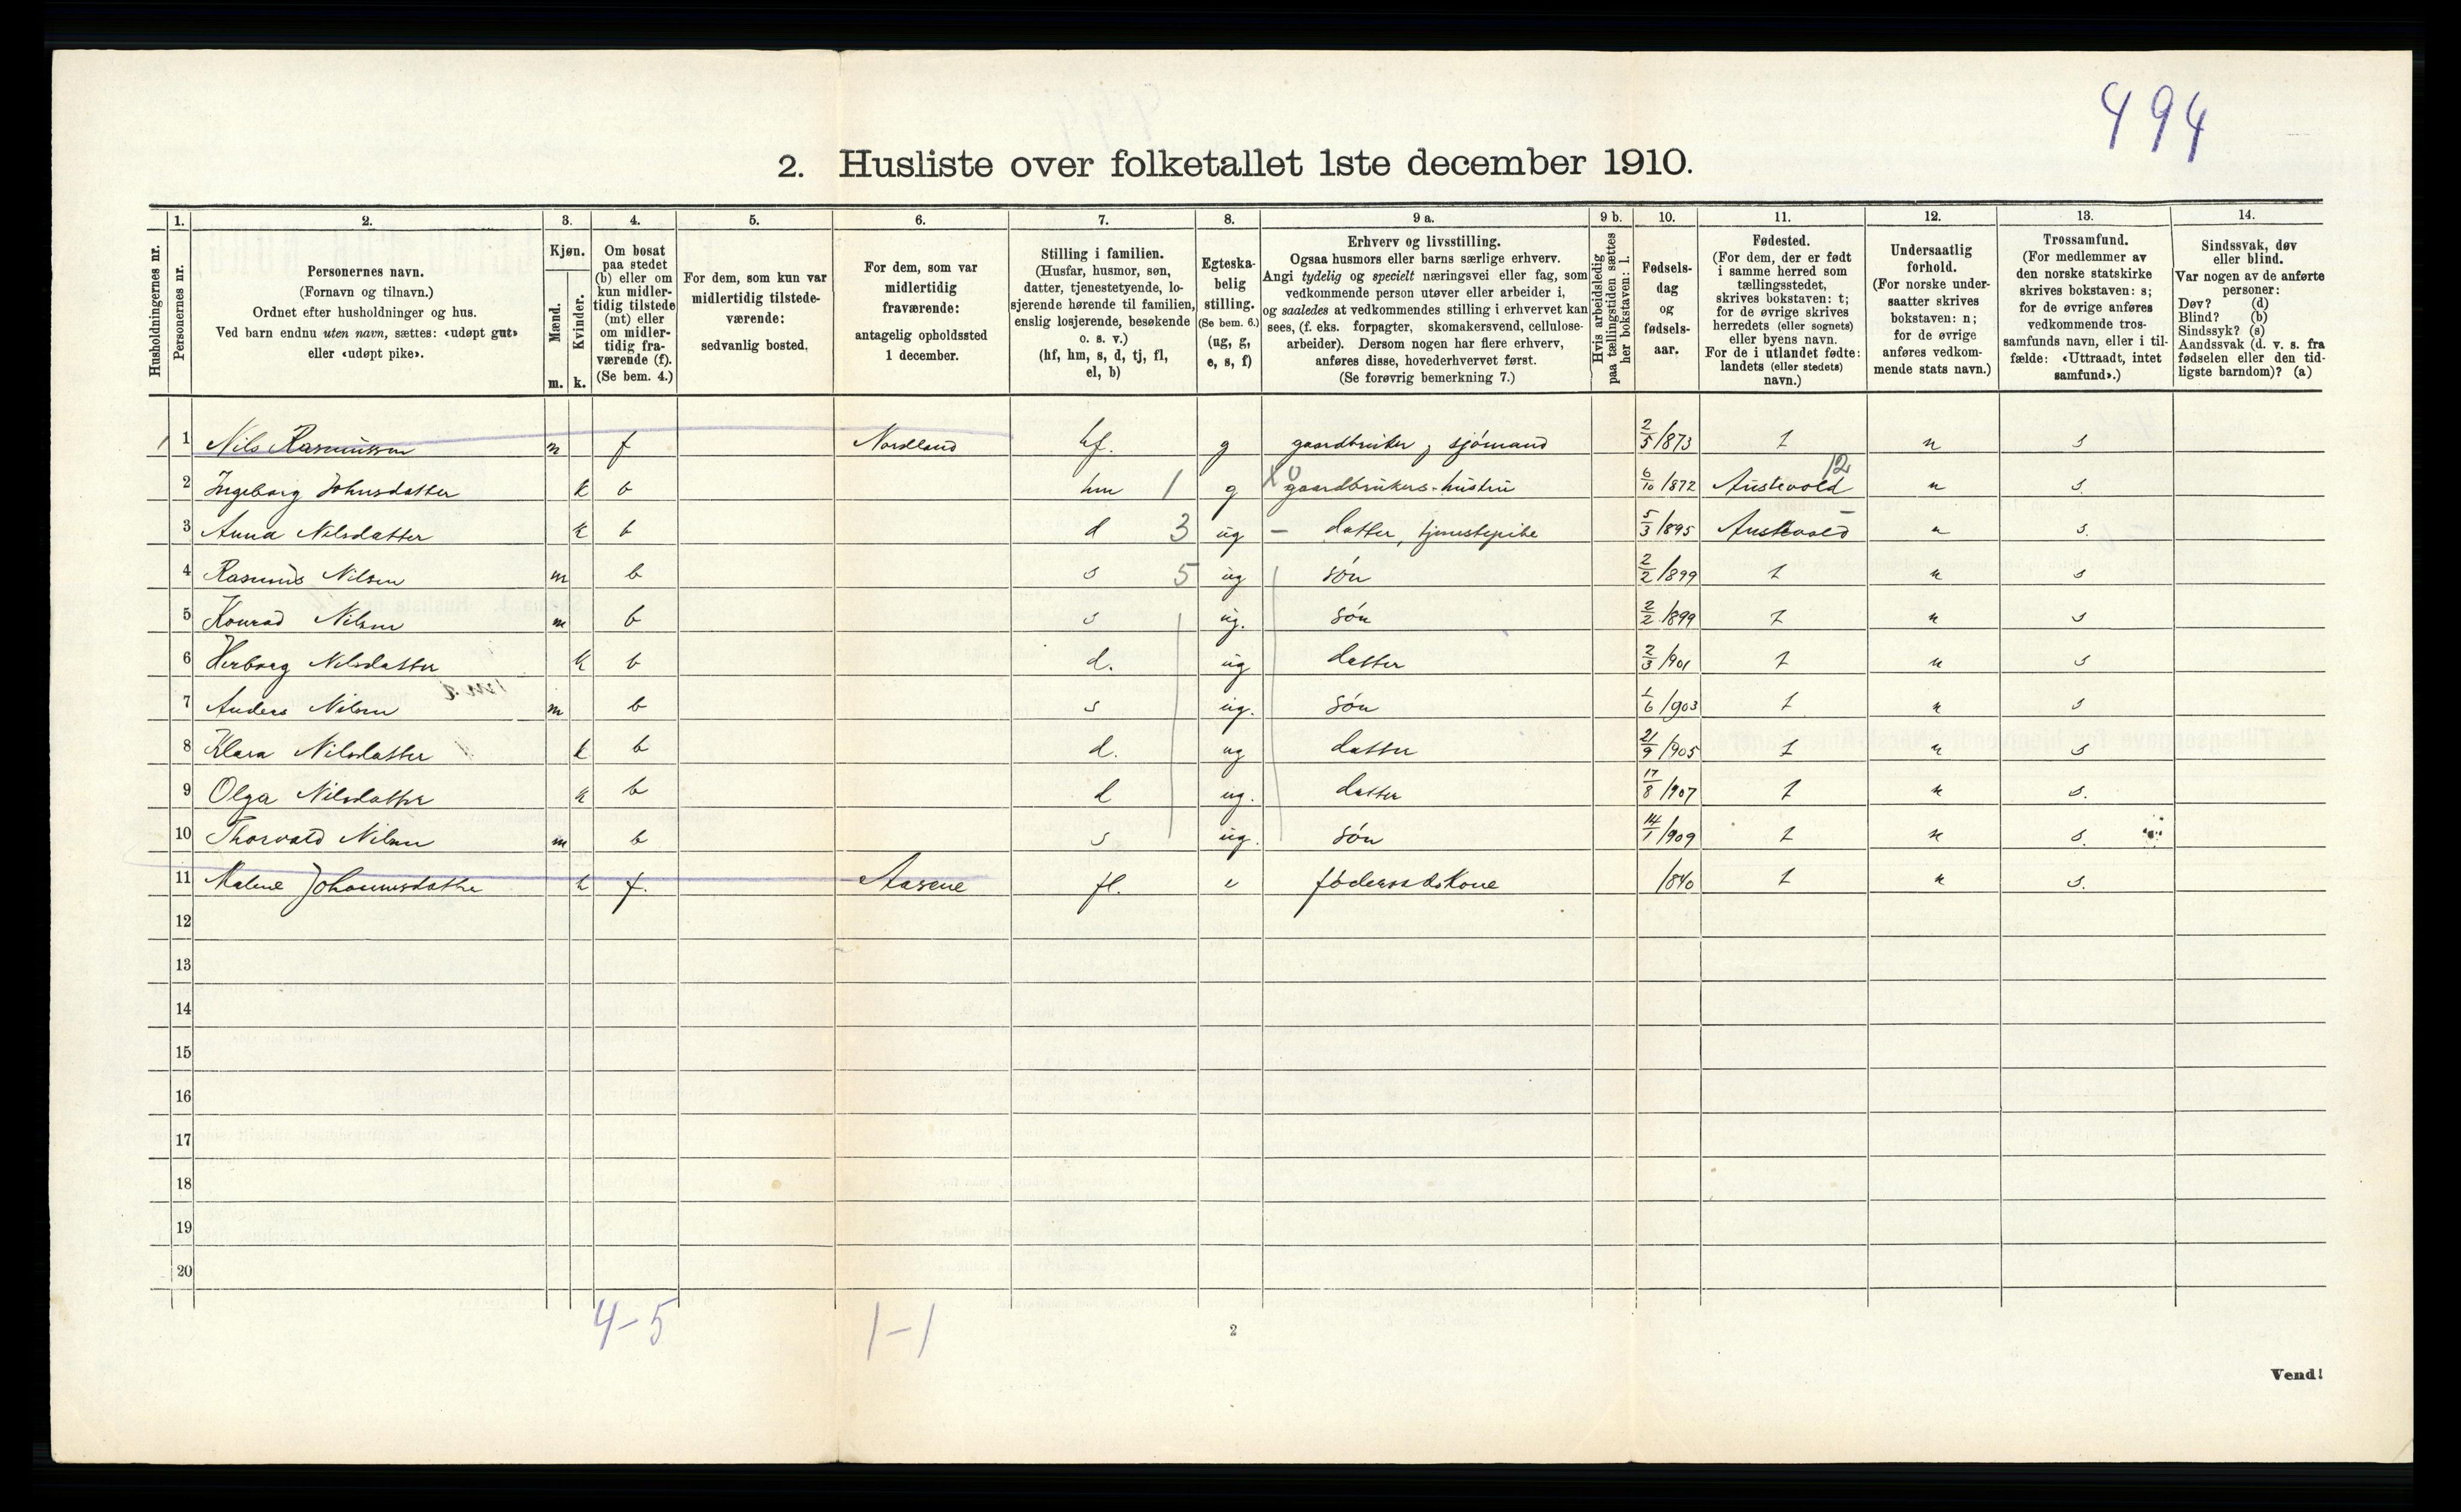 494
2. Husliste over folketallet 1ste december 1910.
Husholdningernes nr.
1. Personernes nr.
2. Personernes navn. (Fornavn og tilnavn.) Ordnet efter husholdninger og hus. Ved barn endnu uten navn, sættes: «udøpt gut» eller «udøpt pike».
3. Kjøn. Mænd. m. Kvinder. k.
4. Om bosat paa stedet (b) eller om kun midler-tidig tilstede (mt) eller om midler-tidig fra-værende (f). (Se bem. 4.)
5. For dem, som kun var midlertidig tilstede-værende: sedvanlig bosted.
6. For dem, som var midlertidig fraværende: antagelig opholdssted 1 december.
7. Stilling i familien. (Husfar, husmor, søn, datter, tjenestetyende, lo-sjerende hørende til familien, enslig losjerende, besøkende o. s. v.) (hf, hm, s, d, tj, fl, el, b)
8. Egteska-belig stilling. (Se bem. 6.) (ug, g, e, s, f)
9 a. Erhverv og livsstilling. Ogsaa husmors eller barns særlige erhverv. Angi tydelig og specielt næringsvei eller fag, som vedkommende person utøver eller arbeider i, og saaledes at vedkommendes stilling i erhvervet kan sees, (f. eks. forpagter, skomakersvend, cellulose-arbeider). Dersom nogen har flere erhverv, anføres disse, hovederhvervet først. (Se forøvrig bemerkning 7.)
9 b. Hvis arbeidsledig paa tællingstiden sættes her bokstaven: l.
10. Fødsels-dag og fødsels-aar.
11. Fødested. (For dem, der er født i samme herred som tællingsstedet, skrives bokstaven: t; for de øvrige skrives herredets (eller sognets) eller byens navn. For de i utlandet fødte: landets (eller stedets) navn.)
12. Undersaatlig forhold. (For norske under-saatter skrives bokstaven: n; for de øvrige anføres vedkom-mende stats navn.)
13. Trossamfund. (For medlemmer av den norske statskirke skrives bokstaven: s; for de øvrige anføres vedkommende tros-samfunds navn, eller i til-fælde: «Uttraadt, intet samfund».)
14. Sindssvak, døv eller blind. Var nogen av de anførte personer: Døv? (d) Blind? (b) Sindssyk? (s) Aandssvak (d. v. s. fra fødselen eller den tid-ligste barndom)? (a)
1 1 Nils Rasmussen m f Nordland hf. g gaardbruker, sjómand 2/5 1873 t n s
2 Ingeborg Johnsdatter k b hm 1 g gaardbrukers-hustru 6/10 1872 Austevold 12 n s.
3 Anna Nilsdatter k b d 3 ug – datter, tjenestepike 5/3 1895 Austevold n s.
4 Rasmus Nilsen m b s 5 ug són 2/2 1899 t n s
5 Konrad Nilsen m b s ug. són 2/2 1899 t n s
6 Herborg Nilsdatter k b d. ug datter 2/3 1901 t n s
7 Anders Nilsen m b s ug. són 1/6 1903 t n s
8 Klara Nilsdatter k b d. ug datter 21/9 1905 t n s
9 Olga Nilsdatter k b d ug. datter 17/8 1907 t n s.
10 Thorvald Nilsen m b s ug. són 14/1 1909 t n s.
11 Malene Johannesdatter k f. Aasene fl. eføderaadskone 1840 t n s.
12
13
14
15
16
17
18
19
20
4–5 1–1
2
Vend!